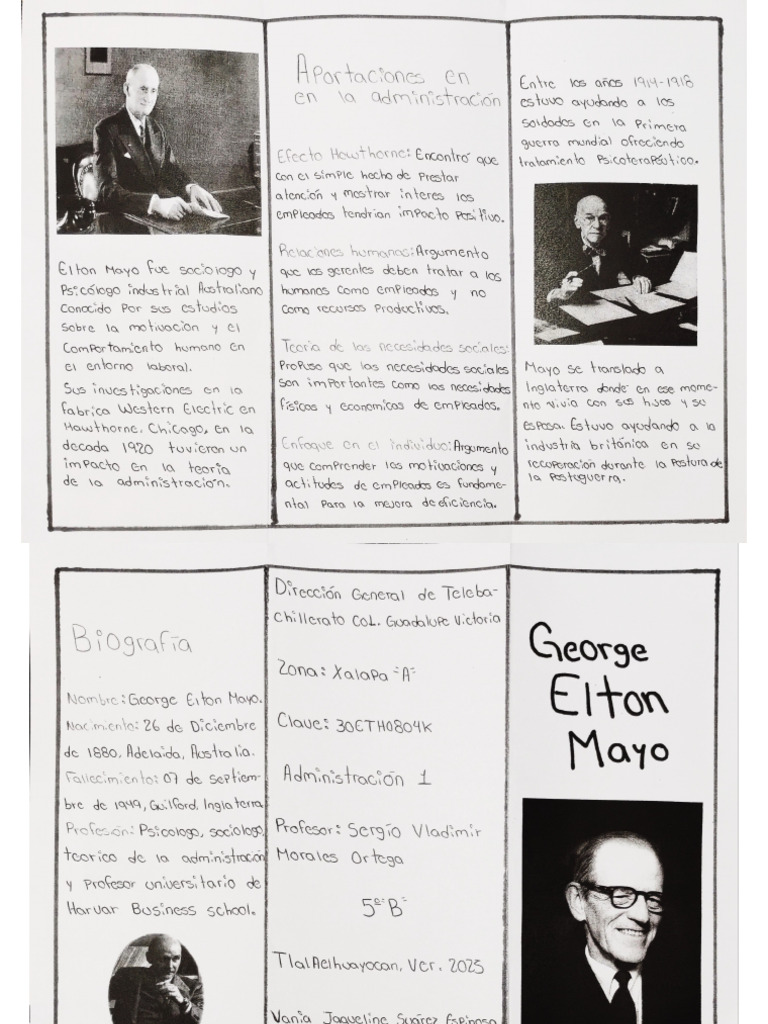 Elton Mayo fue sociologo y
Psicólogo industrial Australiano
Conocido Por sus estudios
sobre la motivación y el
Comportamiento humano en
el entorno laboral.
Sus investigaciones en la
fabrica Western Electric en
Hawthorne. Chicago, en la
decada 1920 tuvieron un
impacto en la teoria
de la administración.
Aportaciones en
en la administración
Efecto Hawthorne: Encontró que
con el simple hecho de Prestar
atención y mostrar interes los
empleados tendrian impacto Positivo.
Relaciones humanas: Argumento
que los gerentes deben tratar a los
humanos como empleados y no
como recursos Productivos.
Teoria de las necesidades sociales:
Propuso que las necesidades sociales
son importantes como las necesidades
físicas y economicas de empleados.
Enfoque en el individuo: Argumento
que comprender las motivaciones y
actitudes de empleados es fundame-
ntal Para la mejora de eficiencia.
Entre los años 1914-1918
estuvo ayudando a los
soldados en la Primera
guerra mundial ofreciendo
tratamiento Psicoterapéutico.
Mayo se translado a
Inglaterra donde en ese mome-
nto vivia con sus hijos y su
esposa. Estuvo ayudando a la
industria británica en su
recuperación durante la Postura de
la Postguerra.
Biografía
Nombre: George Elton Mayo.
Nacimiento: 26 de Diciembre
de 1880, Adelaida, Australia.
Fallecimiento: 07 de septiem-
bre de 1949, Guilford, Inglaterra
Profesión: Psicologo, sociologo,
teorico de la administración
y Profesor universitario de
Harvar Business school.
Dirección General de Teleba-
chillerato Col. Guadalupe Victoria
Zona: Xalapa "A"
Clave: 30ETH0804K
Administración 1
Profesor: Sergio Vladimir
Morales Ortega
5º "B"
Tlalnelhuayocan, Ver. 2023
Vania Jaqueline Suárez Espinosa
George
Elton
Mayo